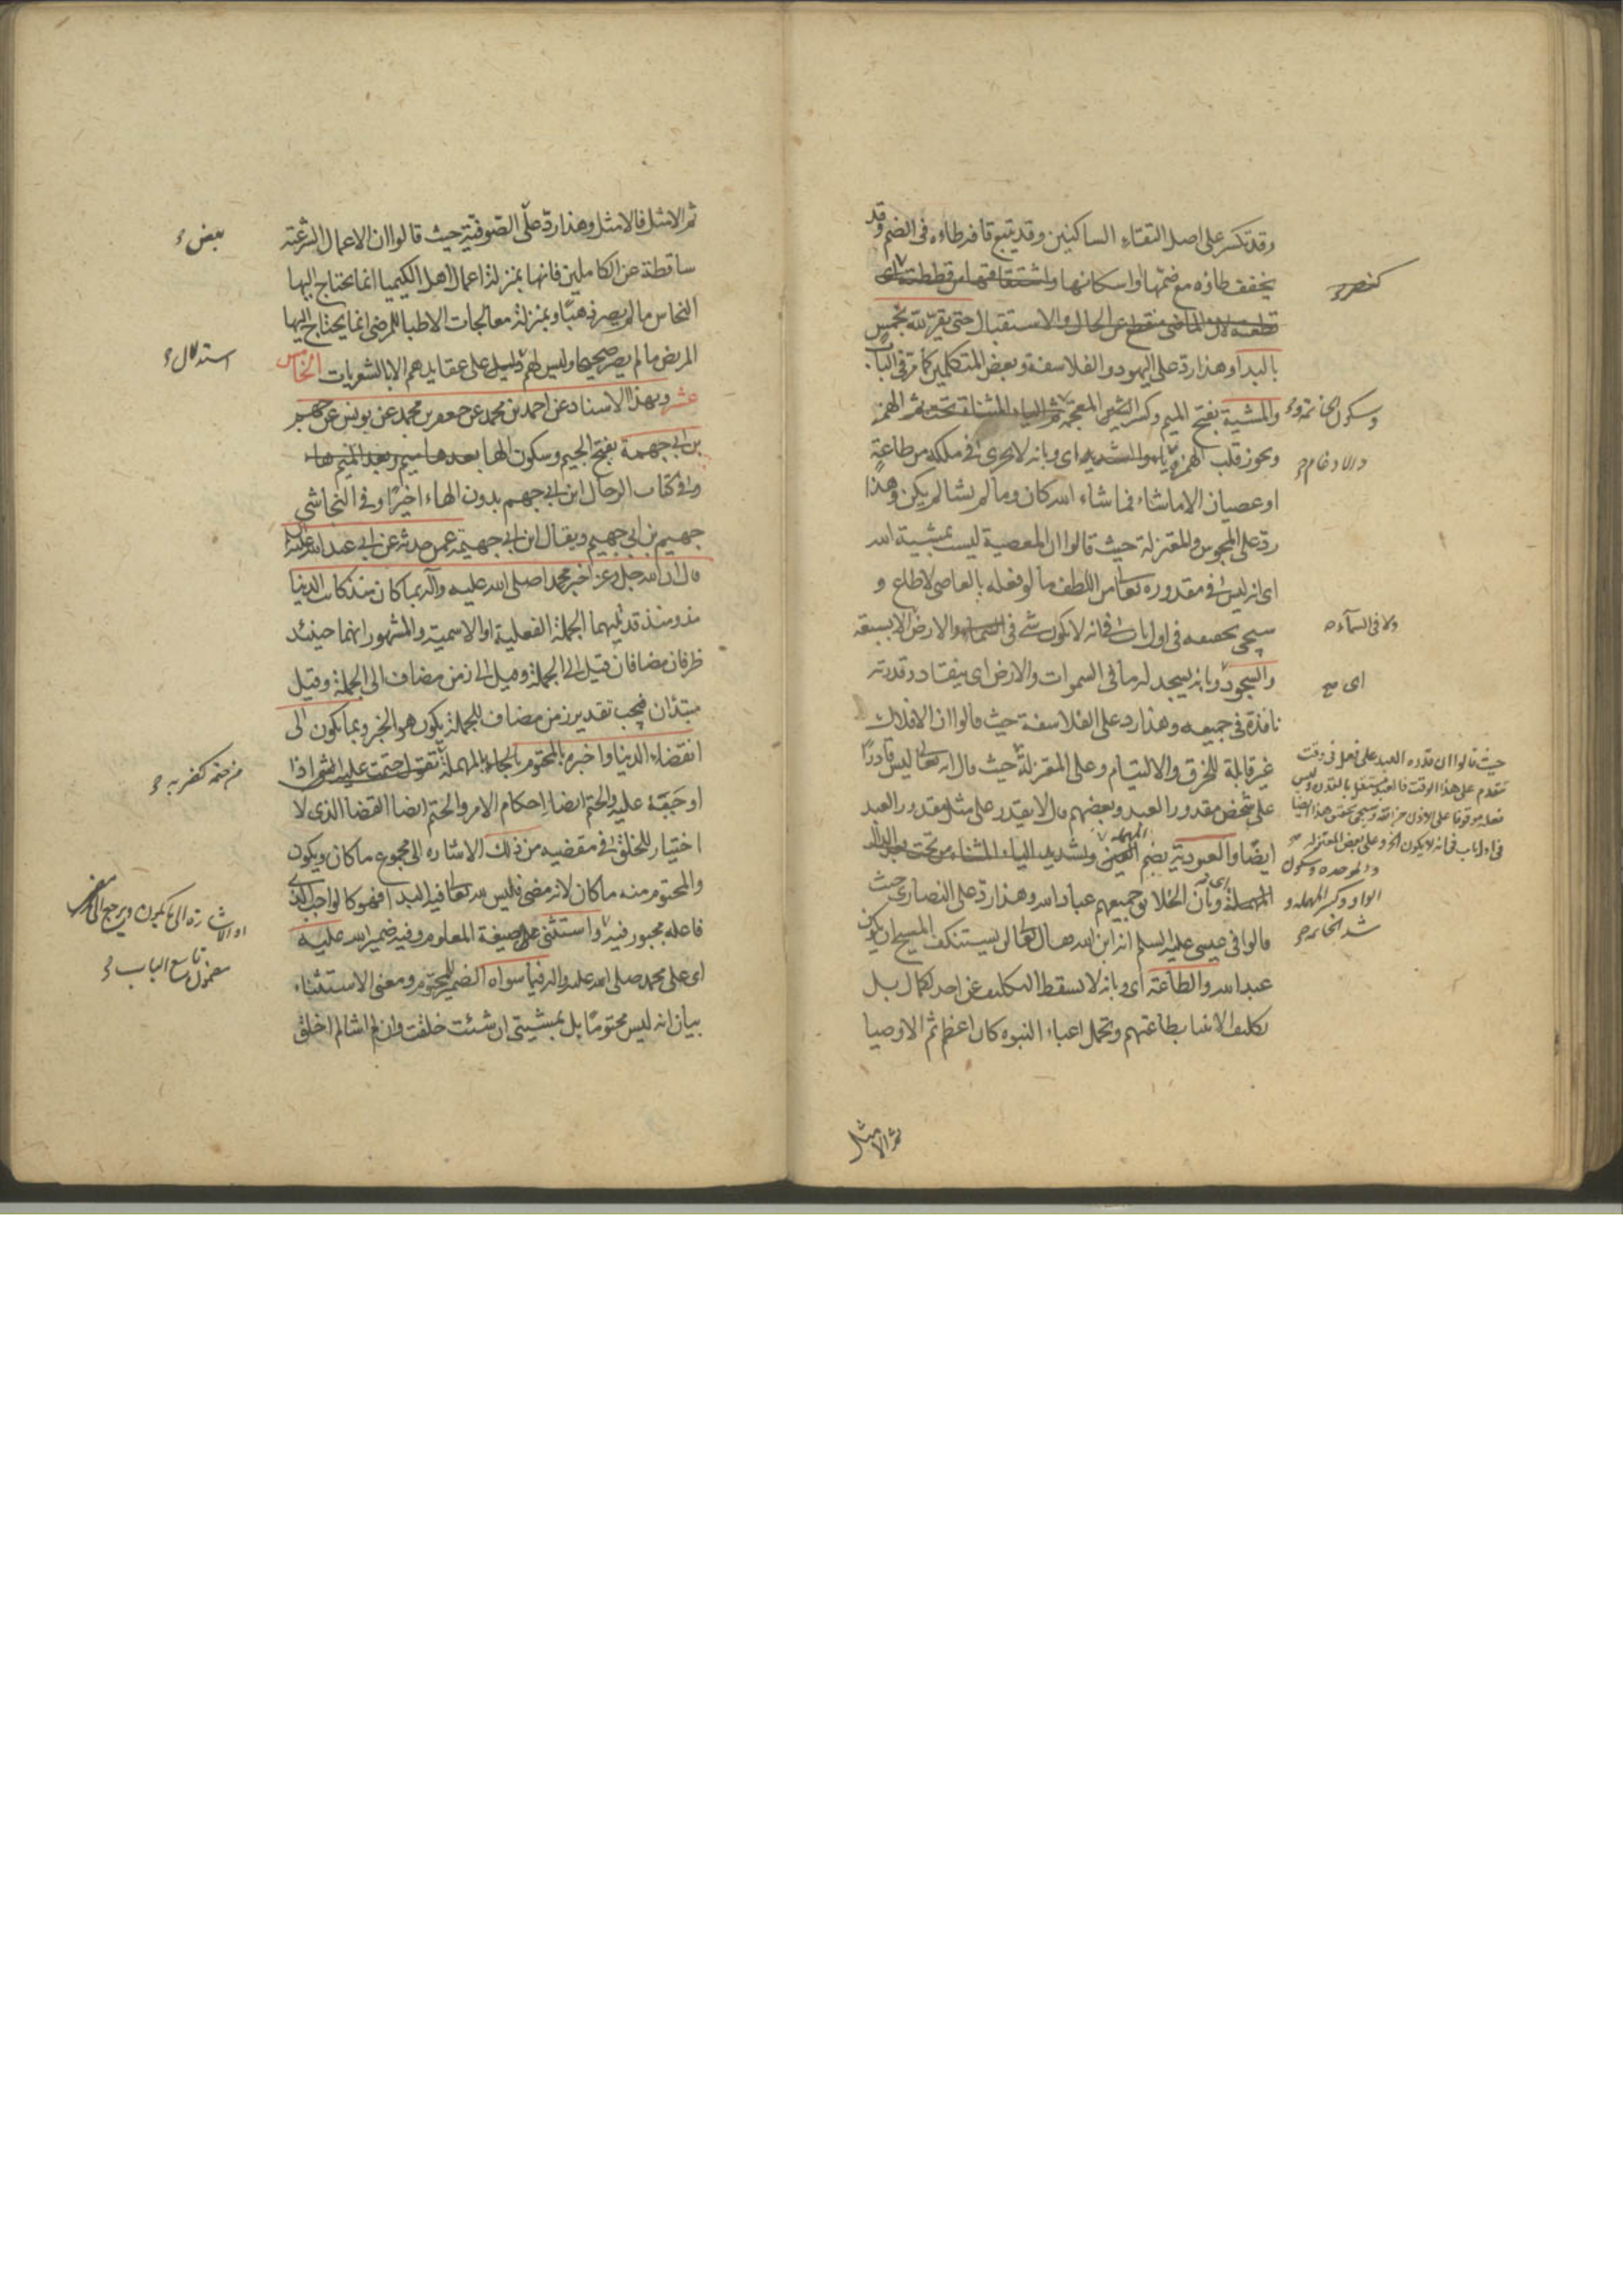 وقد تكسر على اصل التقاء الساكنين وقد يتبع قافه طاءه في الضم وقد
يخفف طاؤه مع ضمها او اسكانها واشتقاقها من قططته اى
قطعته لان الماضي منقطع عن الحال والاستقبال حتى يقر لله بخمس
بالبداء وهذا رد على اليهود والفلاسفة وبعض المتكلمين كما مر في الباب
والمشية بفتح الميم وكسر الشين المعجمة والياء المثناة تحت ثم الهمزة
ويجوز قلب الهمزة ياء والتشديد اى وبانه لا يجرى في ملكه من طاعة
او عصيان الا ما شاء فما شاء الله كان وما لم يشا لم يكن وهذا
رد على المجوس والمعتزلة حيث قالوا ان المعصية ليست بمشية الله
اى انه ليس في مقدوره تعالى من اللطف ما لو فعله بالعاصى لاطاع و
سيجى تحقيقه في اول باب في انه لا يكون شى في السماء والارض الا بسبعة
والسجود وبانه يسجد له ما في السموات والارض اى ينقاد وقدرته
نافذة في جميعه وهذا رد على الفلاسفة حيث قالوا ان الافلاك
غير قابلة للخرق والالتيام وعلى المعتزلة حيث قال انه تعالى ليس قادرًا
على شخص مقدور العبد وبعضهم قال لا يقدر على مثل مقدور العبد
ايضًا والعبودية بضم العين وتشديد الياء المثناة من تحت بعد الدال
المهملة وبان الخلائق جميعهم عباد الله وهذا رد على النصارى حيث
قالوا في عيسى عليه السلم انه ابن الله قال تعالى لن يستنكف المسيح ان يكون
عبدا لله والطاعة اى وبانه لا يسقط التكليف عن احد لكمال بل
تكليف الانبيا بطاعتهم وتحمل اعباء النبوه كان اعظم ثم الاوصيا
كنصر
وسكون الخاتمة و
والادغام
ولا في السماء
حيث قالوا ان قدرة العبد على فعل في وقت
تتقدم على هذا الوقت فالعبد مستقل بالقدرة وليس
فعله موقوفا على الاذن من الله وسيجى تحقيق هذا ايضا
في اول باب في انه لا يكون الخ وعلى بعض المعتزلة
والموحدة وسكون
الواو وكسر المهملة و
شد الخاتمة
ثم الامثل
ثم الامثل فالامثل وهذا رد على الصوفية حيث قالوا ان الاعمال الشرعية
ساقطة عن الكاملين فانها بمنزلة اعمال اهل الكيميا انما يحتاج اليها
النحاس ما لم يصر ذهبًا وبمنزلة معالجات الاطبا للمرضى انما يحتاج اليها
المريض ما لم يصر صحيحا وليس لهم دليل على عقايدهم الا بالشعريات الخامس
عشر وبهذا الاسناد عن احمد بن محمد عن جعفر بن محمد عن يونس عن جهم
بن ابي جهمة بفتح الجيم وسكون الها بعدها ميم وبعد الميم ها
وفي كتاب الرجال ابن ابي جهم بدون الهاء اخيرًا وفي النجاشي
جهيم بن ابي جهيم ويقال ابن ابي جهيمة عمن حدثه عن ابي عبد الله عليه السلم
قال ان الله جل وعز اخبر محمدا صلى الله عليه وآله بما كان منذ كانت الدنيا
مذ ومنذ قد يليهما الجملة الفعلية او الاسمية والمشهور انهما حينئذ
ظرفان مضافان فقيل الى الجملة وقيل الى زمن مضاف الى الجملة وقيل
مبتدآن فيجب تقدير زمن مضاف للجملة يكون هو الخبر وبما يكون الى
انقضاء الدنيا واخبره بالمحتوم بالحاء المهملة تقول حتمت عليه الشى اذا
اوجبته عليه والحتم ايضا احكام الامر والحتم ايضا القضا الذى لا
اختيار للخلق في مقضيه من ذلك الاشارة الى مجموع ما كان ويكون
والمحتوم منه ما كان لانه مضى فليس لله تعالى فيه البدا فهو كالواجب الذى
فاعله مجبور فيه واستثنى على صيغة المعلوم وفيه ضمير الله عليه
اى على محمد صلى الله عليه واله فيما سواه الضمير للمحتوم ومعنى الاستثناء
بيان انه ليس محتومًا بل بمشيتى ان شئت خلقت وان لم اشا لم اخلق
بعض
استدلال
من حتمه كضربه
او الاشارة الى ما يكون ويرجع الى
تاسع الباب